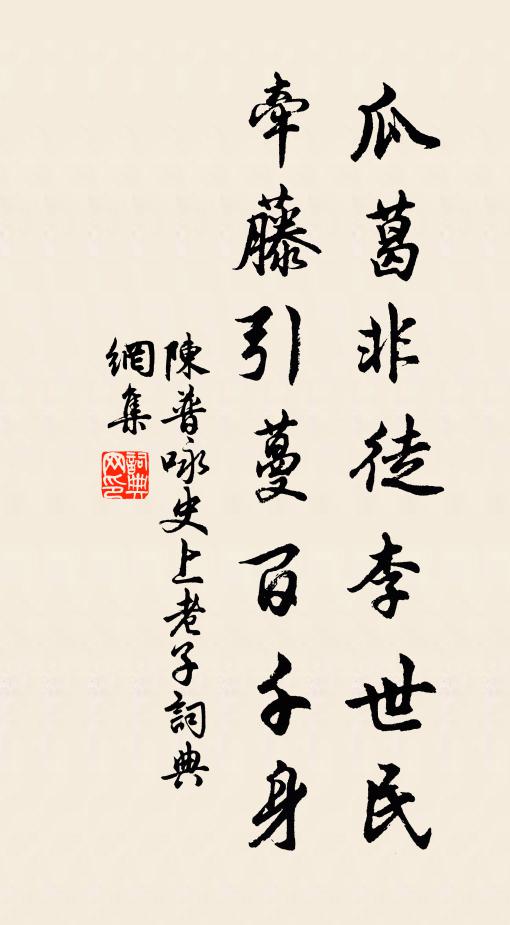 瓜葛非徒李世民
牽藤引蔓百千身
陳普咏史上老子詞典
網集
詞典網印